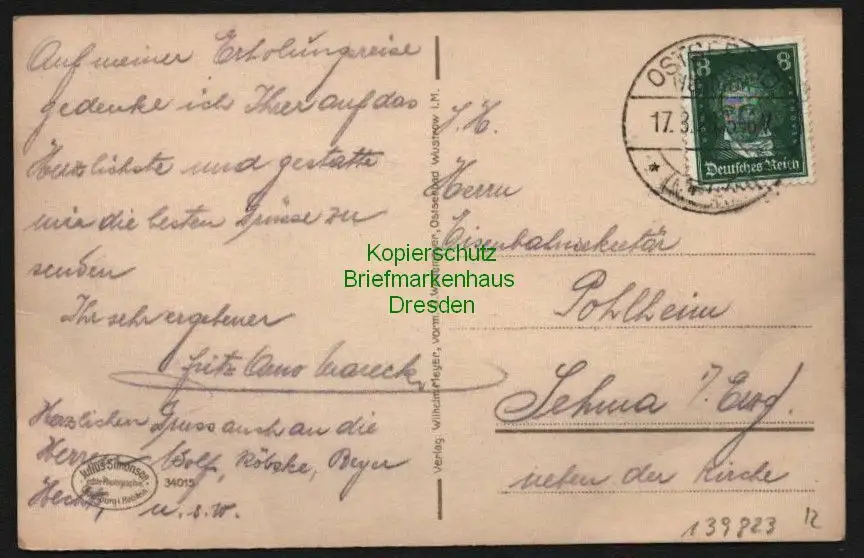 Auf meiner Erholungsreise
gedenke ich Ihrer auf das
Herzlichste und gestatte
mir die besten Grüsse zu
senden
Ihr sehr ergebener
Fritz Arno
Herzlichen Gruss auch an die
Herren Wolf, Köbske, Beyer
u. s. w.
Julius Simonsen
34015
Verlag: Wilhelm Meyer, vorm. Ostseebad Wustrow i. M.
Kopierschutz
Briefmarkenhaus
Dresden
S. H.
Herrn
Eisenbahnsekretär
Pohlheim
Sehma i/Erzg.
neben der Kirche
139823
12
8 8
Deutsches Reich
OSTSEEBAD
17.8.